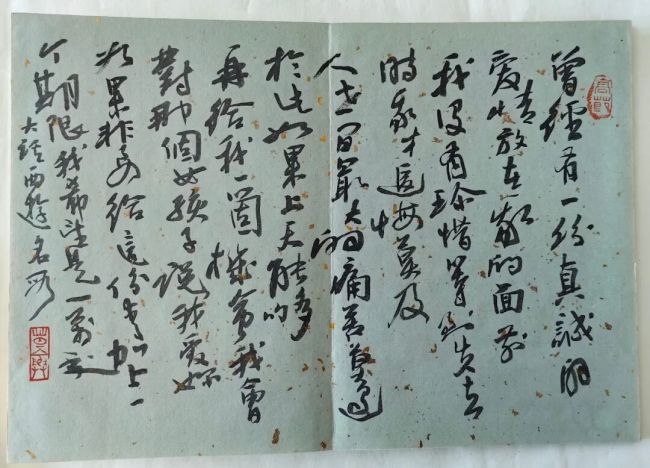 曾經有一份真誠的
爱情放在我的面前
我没有珍惜等到失去
時我才追悔莫及
人世间最大的痛苦莫過
於此如果上天能够
再给我一箇機會我會
對那個女孩子説我爱妳
如果非要给這份爱加上一
个期限我希望是一萬年
大話西遊名